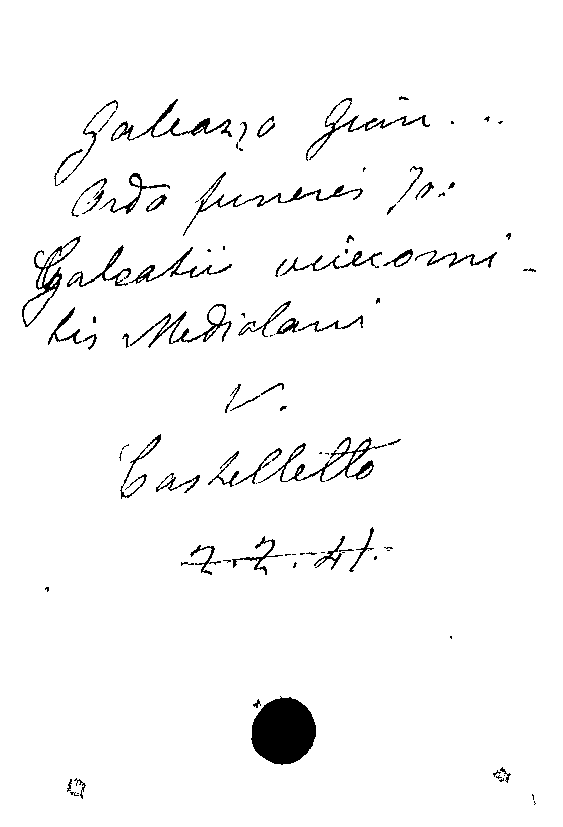 Galeazzo Gian...
Ordo funeris Jo:
Galeatii vicecomi-
tis Mediolani
V.
Castelletto
2.2.41.